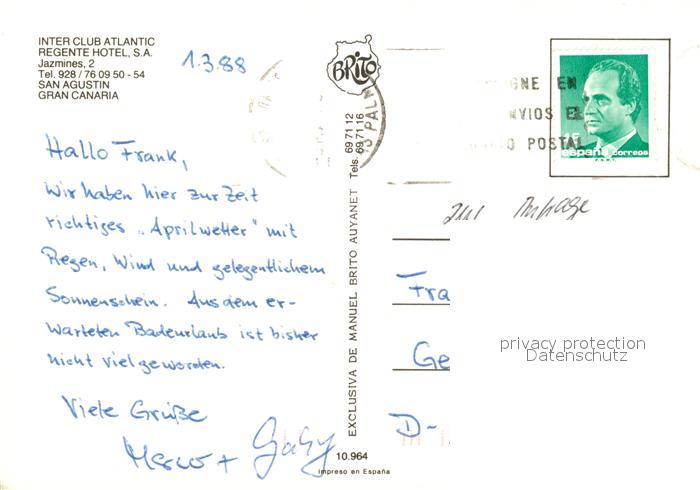 INTER CLUB ATLANTIC
REGENTE HOTEL, S.A.
Jazmines, 2
Tel. 928 / 76 09 50 - 54
SAN AGUSTIN
GRAN CANARIA
1.3.88
Hallo Frank,
Wir haben hier zur Zeit
richtiges „Aprilwetter" mit
Regen, Wind und gelegentlichem
Sonnenschein. Aus dem er-
warteten Badeurlaub ist bisher
nicht viel geworden.
Viele Grüße
Marco + Gaby
BRITO
EXCLUSIVA DE MANUEL BRITO AUYANET Tels. 69 71 12
69 71 16
10.964
Impreso en España
PALM
GNE EN
NVIOS E
O POSTAL
15
España correos
Fra
Ge
D-
privacy protection
Datenschutz